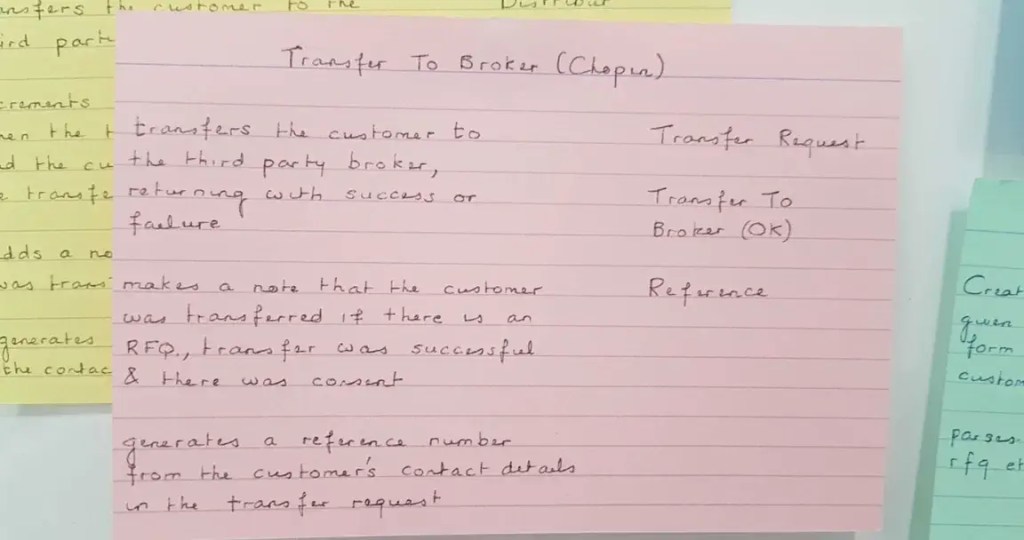 the customer to the
ird party
crements
en the
d the cu
transfe
dds a no
was trans
generates
the contac
Transfer To Broker (Chopin)
transfers the customer to
the third party broker,
returning with success or
failure
makes a note that the customer
was transferred if there is an
RFQ., transfer was successful
& there was consent
generates a reference number
from the customer's contact details
in the transfer request
Transfer Request
Transfer To
Broker (OK)
Reference
Creat
given
form
custom
parses
rfq et